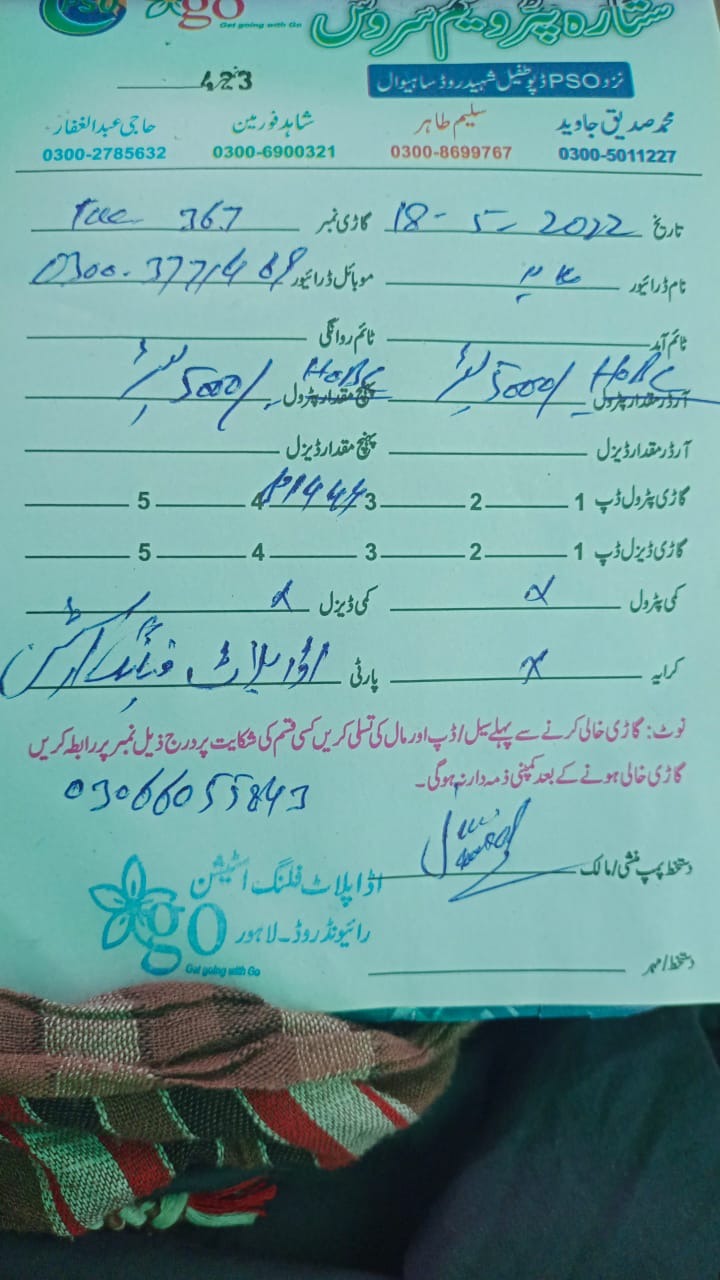 PSO go Get going with Go ستارہ پٹرولیم سروس
نزد PSO ڈپو طفیل شہید روڈ ساہیوال
423
محمد صدیق جاوید سلیم طاہر شاہد فورمین حاجی عبدالغفار
0300-5011227 0300-8699767 0300-6900321 0300-2785632
تاریخ 18-5-2022 گاڑی نمبر 367
نام ڈرائیور موبائل ڈرائیور
ٹائم آمد ٹائم روانگی
آرڈر مقدار پٹرول HOBC 5000/ لیٹر پہنچ مقدار پٹرول HOBC 5000/ لیٹر
آرڈر مقدار ڈیزل پہنچ مقدار ڈیزل
گاڑی پٹرول ڈپ 1 2 3 4 5
گاڑی ڈیزل ڈپ 1 2 3 4 5
کمی پٹرول x کمی ڈیزل x
کرایہ x پارٹی اڈا پلاٹ فلنگ اسٹیشن
نوٹ: گاڑی خالی کرنے سے پہلے سیل/ڈپ اور مال کی تسلی کریں کسی قسم کی شکایت پر درج ذیل نمبر پر رابطہ کریں
گاڑی خالی ہونے کے بعد کمپنی ذمہ دار نہ ہوگی۔
03066055843
دستخط پمپ منشی/مالک
اڈا پلاٹ فلنگ اسٹیشن
رائیونڈ روڈ۔ لاہور
go
Get going with Go
دستخط/مہر